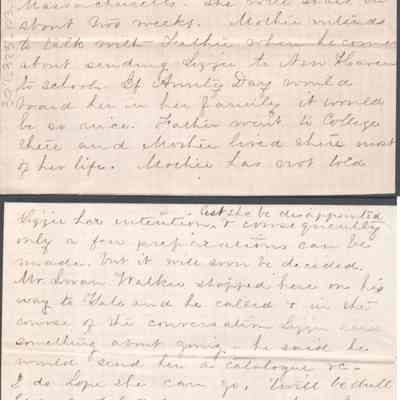 Massachusetts. She will start in
about two weeks. Mother intends
to talk with Father when he comes
about sending Lizzie to New Haven
to school. If Aunty Day would
board her in her family it would
be so nice. Father went to College
there and Mother lived there most
of her life. Mother has not told
Lizzie her intention, lest she be disappointed
& consequently
only a few preparations can be
made. But it will soon be decided.
Mr. Swan Walker stopped here on his
way to Yale and he called & in the
course of the conversation Lizzie
something about going - he said he
would send her a catalogue &c -
I do hope she can go. Twill be dull